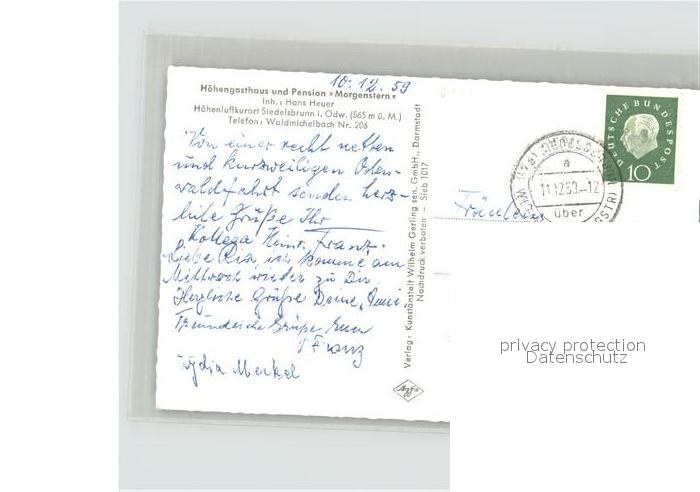 10.12.59
Höhengasthaus und Pension »Morgenstern«
Inh.: Hans Heuer
Höhenluftkurort Siedelsbrunn i. Odw. (565 m ü. M.)
Telefon: Waldmichelbach Nr. 206
Von einer recht netten
und kurzweiligen Oden-
waldfahrt senden herz-
liche Grüße Ihr
Kollege Heinr. Franz.
Liebe Ria, ich komme am
Mittwoch wieder zu Dir
Herzliche Grüße Deine
Freundliche Grüße
Franz
Lydia Merkel
Verlag: Kunstanstalt Wilhelm Gerling sen. GmbH., Darmstadt
Nachdruck verboten – Sieb 1017
Fräulein
DEUTSCHE BUNDESPOST
10
a
11.12.59.-12
über
privacy protection
Datenschutz